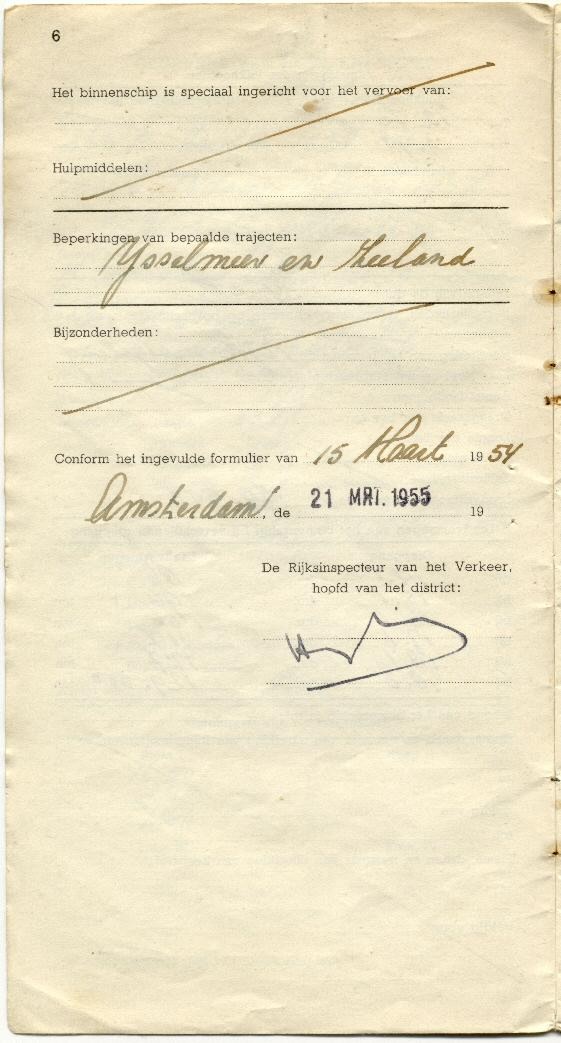 6
Het binnenschip is speciaal ingericht voor het vervoer van:
Hulpmiddelen:
Beperkingen van bepaalde trajecten:
Ysselmeer en Zeeland
Bijzonderheden:
Conform het ingevulde formulier van 15 Maart 1954
Amsterdam, de 21 MRT. 1955 19
De Rijksinspecteur van het Verkeer,
hoofd van het district: